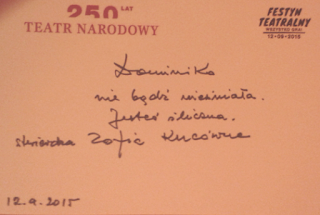 250 LAT
TEATR NARODOWY
FESTYN
TEATRALNY
WSZYSTKO GRA!
12-09-2015
Dominiko
nie bądź nieśmiała.
Jesteś śliczna.
Zofia Kucówna
12.9.2015